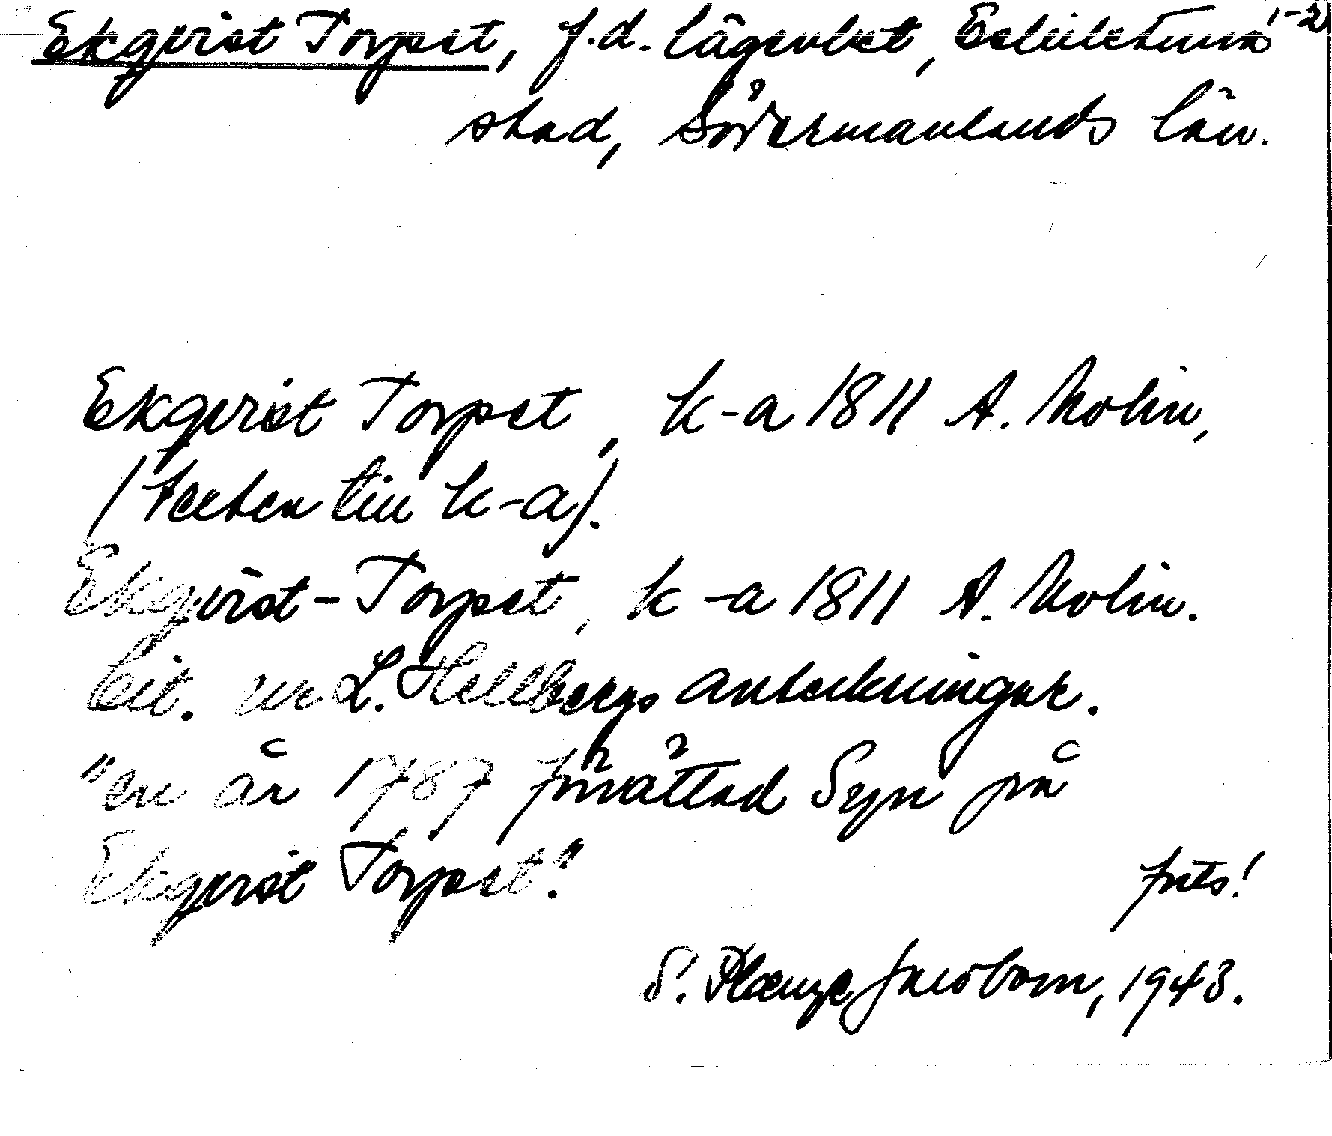 Ekqvist Torpet, f.d. lägenhet, Eskilstuna 1-2
stad, Södermanlands län.
Ekqvist Torpet, k-a 1811 A. Molin,
(texten till k-a).
Ekqvist-Torpet, k-a 1811 A. Molin.
Cit. ur L. Hellbergs anteckningar.
"en år 1787 förrättad Syn på
Ekqvist Torpet".
forts!
S. Jacobson, 1943.